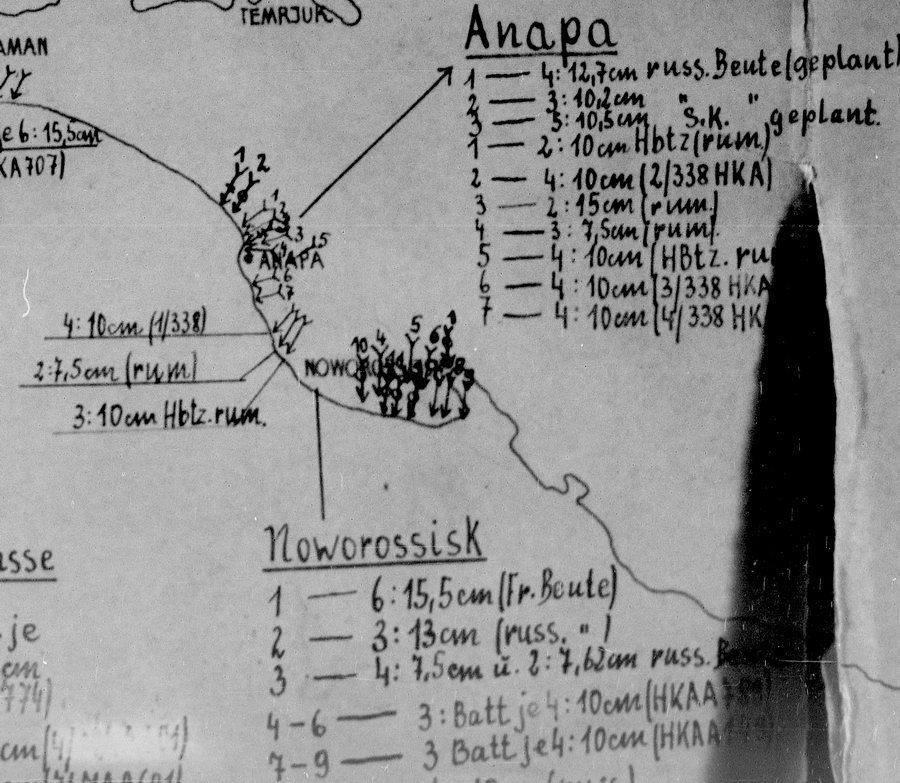 TEMRJUK
AMAN
e 6: 15,5cm
KA707)
Anapa
1 — 4: 12,7cm russ. Beute (geplant)
2 — 3: 10,2cm " "
3 — 5: 10,5cm S.K. geplant.
1 — 2: 10cm Hbtz (rum.)
2 — 4: 10cm (2/338 HKA)
3 — 2: 15cm (rum.)
4 — 3: 7,5cm (rum).
5 — 4: 10cm (HBtz. ru
6 — 4: 10cm (3/338 HKA
7 — 4: 10cm (4/338 HK
1 2
1
3
5
ANAPA
6
7
4: 10cm (1/338)
2: 7,5cm (rum)
3: 10cm Hbtz. rum.
10 4 5 6 1
Noworossisk
1 — 6: 15,5cm (Fr. Beute)
2 — 3: 13cm (russ. " )
3 — 4: 7,5cm u. 2: 7,62cm russ. Be
4-6 — 3: Batt je 4: 10cm (HKAA
7-9 — 3 Batt je 4: 10cm (HKAA
asse
je
cm
774)
cm (4/